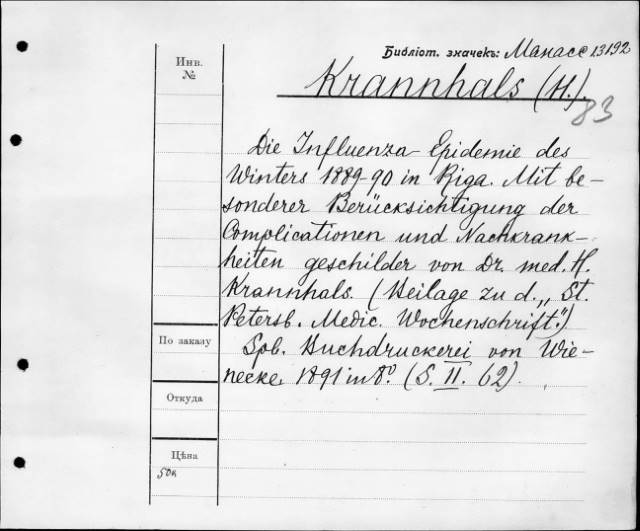 Библіот. значекъ: Манасс 13192
Krannhals (H.)
83
Инв.
№
Die Influenza-Epidemie des
Winters 1889-90 in Riga. Mit be-
sonderer Berücksichtigung der
Complicationen und Nachkrank-
heiten geschilder von Dr. med. H.
Krannhals. (Beilage zu d. „St.
Petersb. Medic. Wochenschrift“.)
Spb. Buchdruckerei von Wie-
necke. 1891 in 8°. (S. II. 62).
По заказу
Откуда
Цѣна
50к